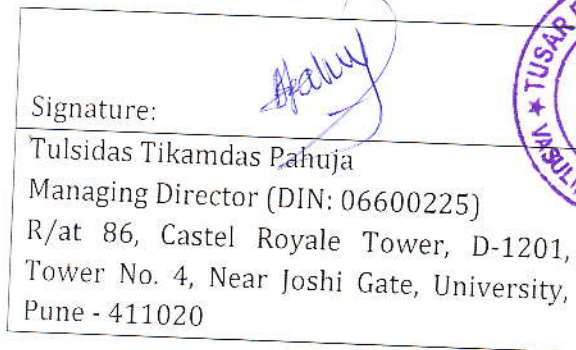 Signature:
Tulsidas Tikamdas Pahuja
Managing Director (DIN: 06600225)
R/at 86, Castel Royale Tower, D-1201,
Tower No. 4, Near Joshi Gate, University,
Pune - 411020
★ TUSAR